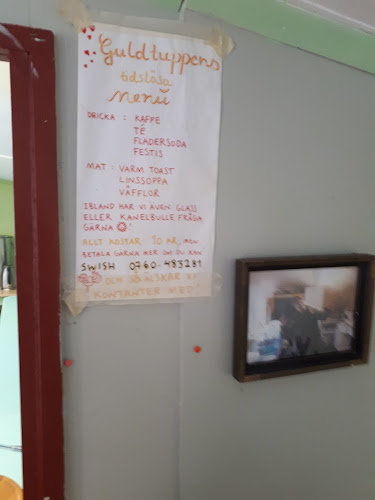 Guldtuppens
tidslösa
Menü
DRICKA : KAFFE
TÉ
FLÄDERSODA
FESTIS
MAT : VARM TOAST
LINSSOPPA
VÅFFLOR
IBLAND HAR VI ÄVEN GLASS
ELLER KANELBULLE FRÅGA
GÄRNA !
ALLT KOSTAR 10 KR, MEN
BETALA GÄRNA MER OM DU KAN
SWISH 0760-483281
OCH SÅ ÄLSKAR VI
KONTANTER MED!